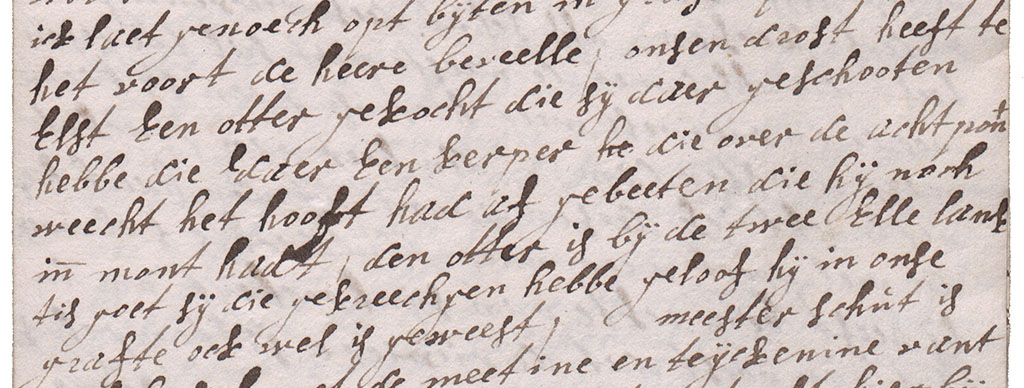 ick laet genoech opt byten in
het voort de heere bereelle, onsen drost heeft te
Elst Een otter gekocht die sÿ daer geschooten
hebbe die daer Een kerper he die over de acht pont
weecht het hooft had af gebeeten die hÿ noch
in mont hadt, den otter is bÿ de twee Elle lanck
tis goet sÿ die gekreechgen hebbe geloof hÿ in onse
grafte ock wel is geweest, meester schut is
de meetine en teÿckenine vant